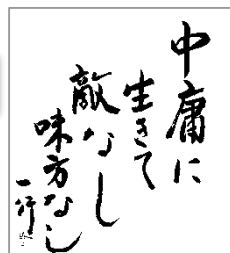 中庸に
生きて
敵なし
味方なし
一行